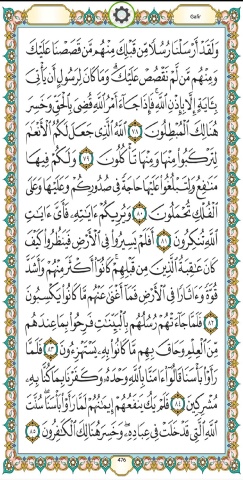 Gafir
وَلَقَدْ أَرْسَلْنَا رُسُلًا مِّن قَبْلِكَ مِنْهُم مَّن قَصَصْنَا عَلَيْكَ
وَمِنْهُم مَّن لَّمْ نَقْصُصْ عَلَيْكَ ۗ وَمَا كَانَ لِرَسُولٍ أَن يَأْتِيَ
بِـَٔايَةٍ إِلَّا بِإِذْنِ ٱللَّهِ ۚ فَإِذَا جَآءَ أَمْرُ ٱللَّهِ قُضِيَ بِٱلْحَقِّ وَخَسِرَ
هُنَالِكَ ٱلْمُبْطِلُونَ ٧٨ ٱللَّهُ ٱلَّذِي جَعَلَ لَكُمُ ٱلْأَنْعَٰمَ
لِتَرْكَبُوا۟ مِنْهَا وَمِنْهَا تَأْكُلُونَ ٧٩ وَلَكُمْ فِيهَا
مَنَٰفِعُ وَلِتَبْلُغُوا۟ عَلَيْهَا حَاجَةً فِي صُدُورِكُمْ وَعَلَيْهَا وَعَلَى
ٱلْفُلْكِ تُحْمَلُونَ ٨٠ وَيُرِيكُمْ ءَايَٰتِهِۦ فَأَيَّ ءَايَٰتِ
ٱللَّهِ تُنكِرُونَ ٨١ أَفَلَمْ يَسِيرُوا۟ فِي ٱلْأَرْضِ فَيَنظُرُوا۟ كَيْفَ
كَانَ عَٰقِبَةُ ٱلَّذِينَ مِن قَبْلِهِمْ ۚ كَانُوٓا۟ أَكْثَرَ مِنْهُمْ وَأَشَدَّ
قُوَّةً وَءَاثَارًا فِي ٱلْأَرْضِ فَمَآ أَغْنَىٰ عَنْهُم مَّا كَانُوا۟ يَكْسِبُونَ
٨٢ فَلَمَّا جَآءَتْهُمْ رُسُلُهُم بِٱلْبَيِّنَٰتِ فَرِحُوا۟ بِمَا عِندَهُم
مِّنَ ٱلْعِلْمِ وَحَاقَ بِهِم مَّا كَانُوا۟ بِهِۦ يَسْتَهْزِءُونَ ٨٣ فَلَمَّا
رَأَوْا۟ بَأْسَنَا قَالُوٓا۟ ءَامَنَّا بِٱللَّهِ وَحْدَهُۥ وَكَفَرْنَا بِمَا كُنَّا بِهِۦ
مُشْرِكِينَ ٨٤ فَلَمْ يَكُ يَنفَعُهُمْ إِيمَٰنُهُمْ لَمَّا رَأَوْا۟ بَأْسَنَا ۖ سُنَّتَ
ٱللَّهِ ٱلَّتِي قَدْ خَلَتْ فِي عِبَادِهِۦ ۖ وَخَسِرَ هُنَالِكَ ٱلْكَٰفِرُونَ ٨٥
476